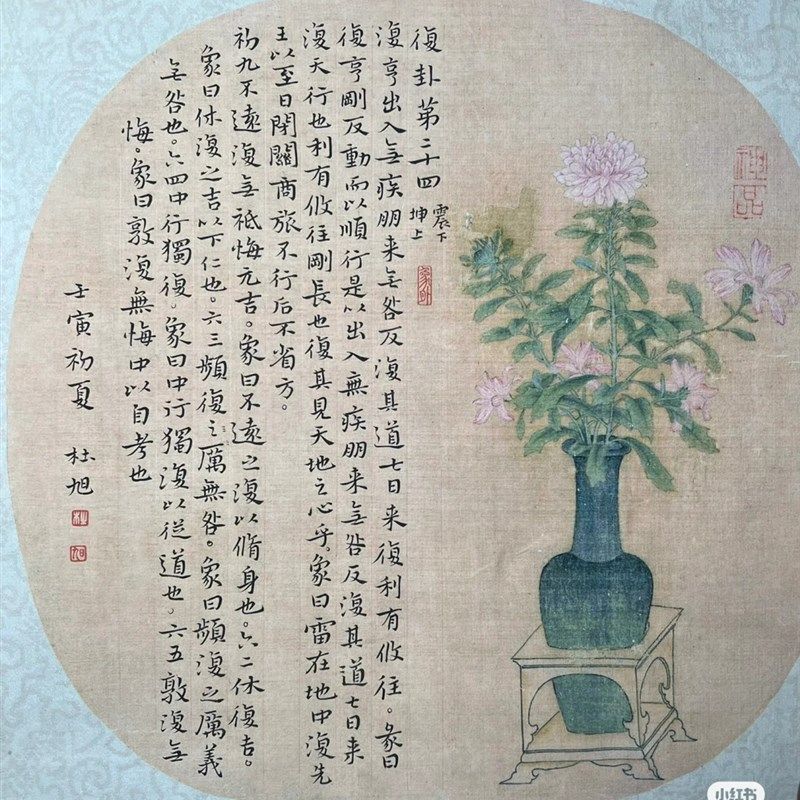 復卦第二十四
震下
坤上
復亨出入无疾朋来无咎反復其道七日来復利有攸往。彖曰
復亨剛反動而以順行是以出入無疾朋来无咎反復其道七日来
復天行也利有攸往剛長也復其見天地之心乎。象曰雷在地中復先
王以至日閉關商旅不行后不省方。
初九不遠復无祗悔元吉。象曰不遠之復以脩身也。六二休復吉。
象曰休復之吉以下仁也。六三頻復之厲無咎。象曰頻復之厲義
无咎也。六四中行獨復。象曰中行獨復以從道也。六五敦復无
悔。象曰敦復無悔中以自考也
壬寅初夏 杜旭
杜
旭
神品
小红书